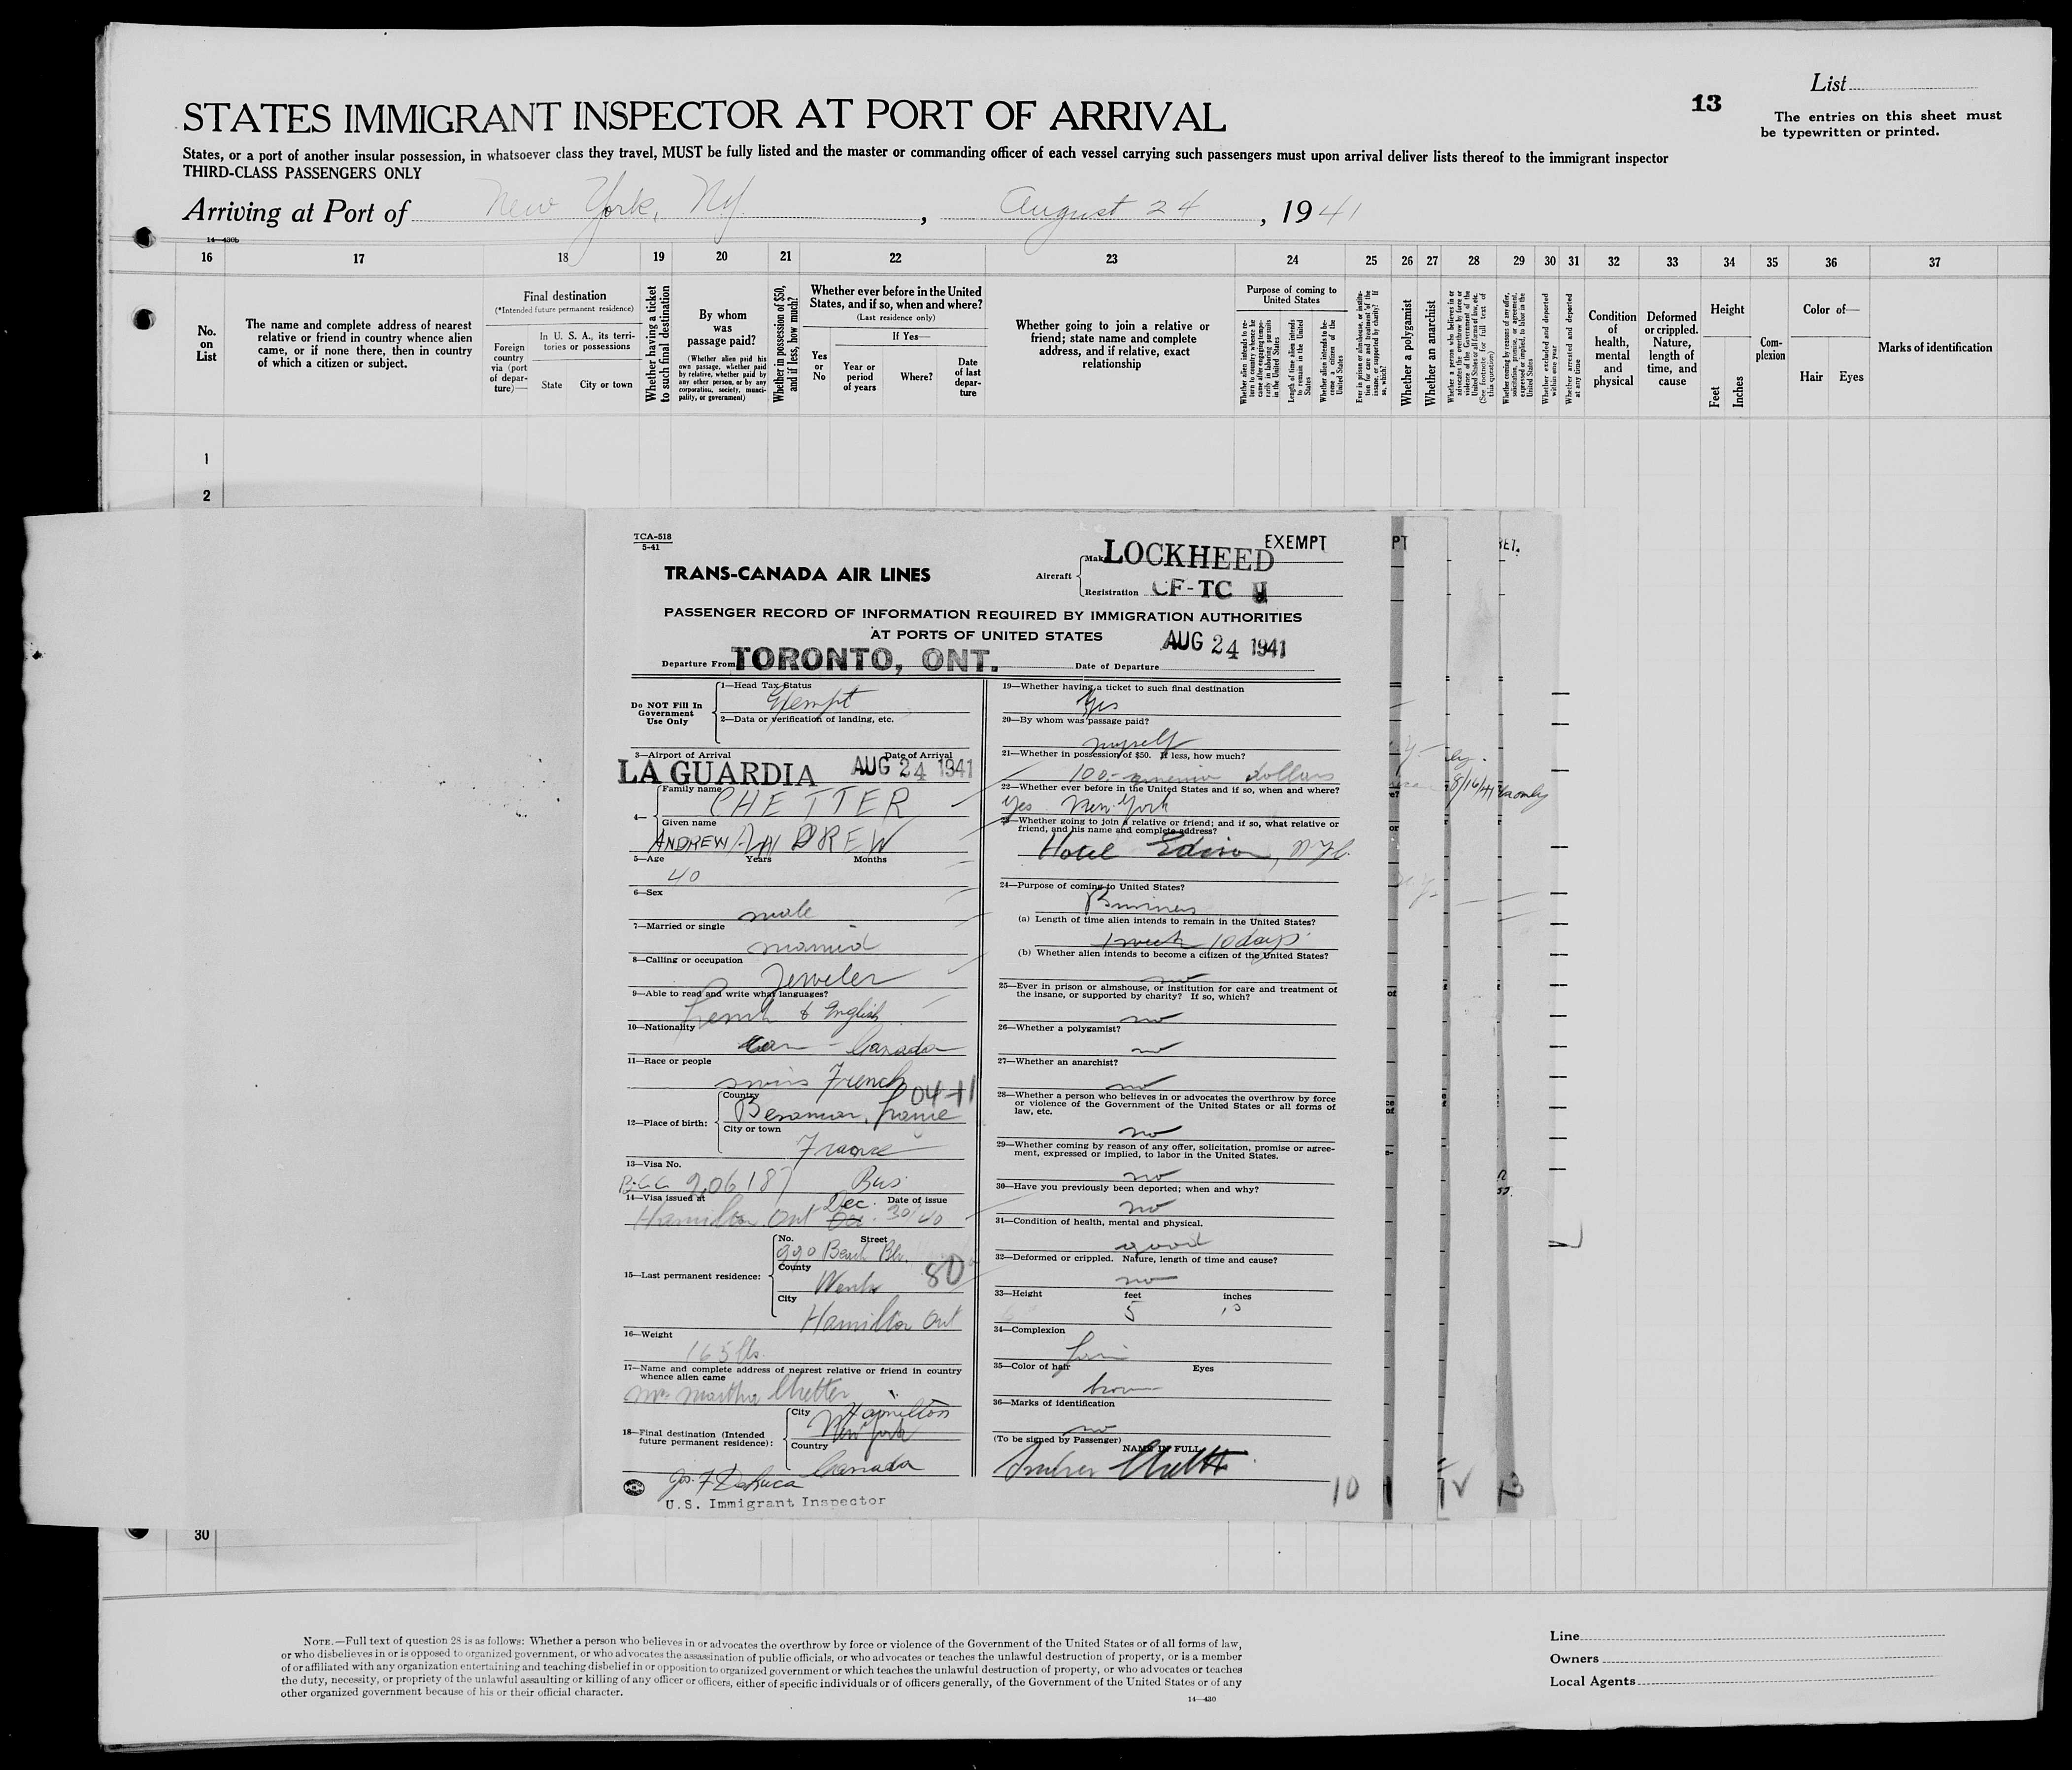 List
13
The entries on this sheet must
be typewritten or printed.
STATES IMMIGRANT INSPECTOR AT PORT OF ARRIVAL
States, or a port of another insular possession, in whatsoever class they travel, MUST be fully listed and the master or commanding officer of each vessel carrying such passengers must upon arrival deliver lists thereof to the immigrant inspector
THIRD-CLASS PASSENGERS ONLY
Arriving at Port of New York, Ny. , August 24 , 1941
14—430b
16 17 18 19 20 21 22 23 24 25 26 27 28 29 30 31 32 33 34 35 36 37
No.
on
List
The name and complete address of nearest
relative or friend in country whence alien
came, or if none there, then in country
of which a citizen or subject.
Final destination
(*Intended future permanent residence)
Foreign
country
via (port
of depar-
ture)—
In U. S. A., its terri-
tories or possessions
State
City or town
Whether having a ticket
to such final destination
By whom
was
passage paid?
(Whether alien paid his
own passage, whether paid
by relative, whether paid by
any other person, or by any
corporation, society, munici-
pality, or government)
Whether in possession of $50,
and if less, how much?
Whether ever before in the United
States, and if so, when and where?
(Last residence only)
Yes
or
No
If Yes—
Year or
period
of years
Where?
Date
of last
depar-
ture
Whether going to join a relative or
friend; state name and complete
address, and if relative, exact
relationship
Purpose of coming to
United States
Whether alien intends to re-
turn to country whence he
came after engaging tempo-
rarily in laboring pursuits
in the United States
Length of time alien intends
to remain in the United
States
Whether alien intends to be-
come a citizen of the
United States
Ever in prison or almshouse, or institu-
tion for care and treatment of the
insane, or supported by charity? If
so, which?
Whether a polygamist
Whether an anarchist
Whether a person who believes in or
advocates the overthrow by force or
violence of the Government of the
United States or all forms of law, etc.
(See footnote for full text of
this question)
Whether coming by reason of any offer,
solicitation, promise, or agreement,
expressed or implied, to labor in the
United States
Whether excluded and deported
within one year
Whether arrested and deported
at any time
Condition
of
health,
mental
and
physical
Deformed
or crippled.
Nature,
length of
time, and
cause
Height
Feet
Inches
Com-
plexion
Color of—
Hair
Eyes
Marks of identification
1
2
TCA-518
5-41
TRANS-CANADA AIR LINES
Aircraft
Make LOCKHEED
EXEMPT
Registration CF-TC
PASSENGER RECORD OF INFORMATION REQUIRED BY IMMIGRATION AUTHORITIES
AT PORTS OF UNITED STATES
AUG 24 1941
Departure From TORONTO, ONT.
Date of Departure
Do NOT Fill In
Government
Use Only
1—Head Tax Status
Exempt
2—Data or verification of landing, etc.
3—Airport of Arrival
Date of Arrival
LA GUARDIA AUG 24 1941
4—
Family name
CHETTER
Given name
ANDREW
5—Age Years Months
40
6—Sex
male
7—Married or single
married
8—Calling or occupation
Jeweler
9—Able to read and write what languages?
French & English
10—Nationality
Can - Canada
11—Race or people
swiss French
04+1
12—Place of birth:
Country
France
City or town
France
13—Visa No.
B.C.C. 906187 Bus
14—Visa issued at
Date of issue
Hamilton Ont Dec. 30/40
15—Last permanent residence:
No. Street
990 Beach Blv.
County
Went
80
City
Hamilton Ont
16—Weight
165 lbs.
17—Name and complete address of nearest relative or friend in country
whence alien came
Mrs Martha Chetter
18—Final destination (Intended
future permanent residence):
City
Hamilton
New York
Country
Canada
U.S. Immigrant Inspector
19—Whether having a ticket to such final destination
Yes
20—By whom was passage paid?
myself
21—Whether in possession of $50. If less, how much?
100.- dollars
22—Whether ever before in the United States and if so, when and where?
yes New York
23—Whether going to join a relative or friend; and if so, what relative or
friend, and his name and complete address?
Hotel Edison, N.Y.C.
24—Purpose of coming to United States?
Business
(a) Length of time alien intends to remain in the United States?
1 week 10 days
(b) Whether alien intends to become a citizen of the United States?
no
25—Ever in prison or almshouse, or institution for care and treatment of
the insane, or supported by charity? If so, which?
no
26—Whether a polygamist?
no
27—Whether an anarchist?
no
28—Whether a person who believes in or advocates the overthrow by force
or violence of the Government of the United States or all forms of
law, etc.
no
29—Whether coming by reason of any offer, solicitation, promise or agree-
ment, expressed or implied, to labor in the United States.
no
30—Have you previously been deported; when and why?
no
31—Condition of health, mental and physical.
good
32—Deformed or crippled. Nature, length of time and cause?
no
33—Height feet inches
5 10
34—Complexion
fair
35—Color of hair Eyes
brown
36—Marks of identification
no
(To be signed by Passenger)
NAME IN FULL
10
30
NOTE.—Full text of question 28 is as follows: Whether a person who believes in or advocates the overthrow by force or violence of the Government of the United States or of all forms of law,
or who disbelieves in or is opposed to organized government, or who advocates the assassination of public officials, or who advocates or teaches the unlawful destruction of property, or is a member
of or affiliated with any organization entertaining and teaching disbelief in or opposition to organized government or which teaches the unlawful destruction of property, or who advocates or teaches
the duty, necessity, or propriety of the unlawful assaulting or killing of any officer or officers, either of specific individuals or of officers generally, of the Government of the United States or of any
other organized government because of his or their official character.
14—430
Line
Owners
Local Agents